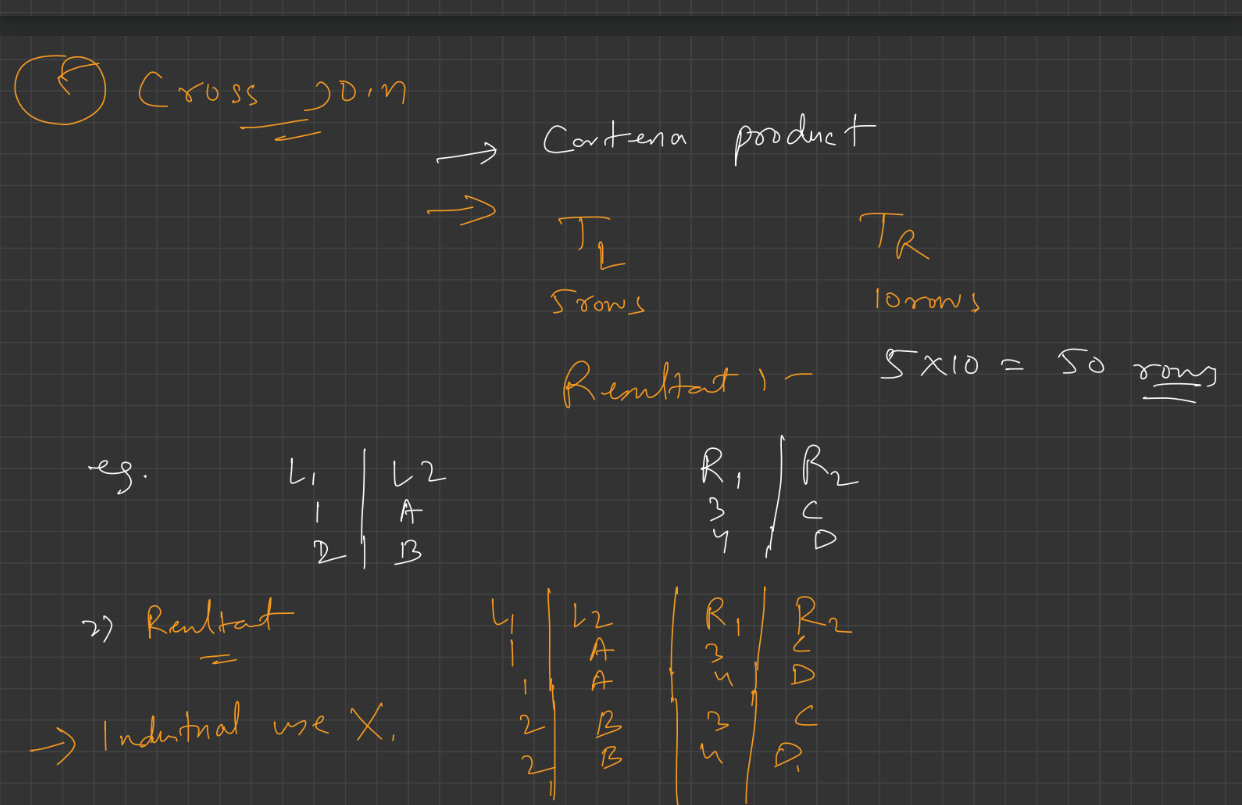 Cross Join
→ Cartena product
⇒ TL TR
5 rows 10 rows
Resultat :- 5×10 = 50 rows
eg. L1 | L2 R1 | R2
1 | A 3 | C
2 | B 4 | D
2) Resultat L1 | L2 | R1 | R2
1 | A | 3 | C
1 | A | 4 | D
2 | B | 3 | C
→ Industrial use X.
2 | B | 4 | D.